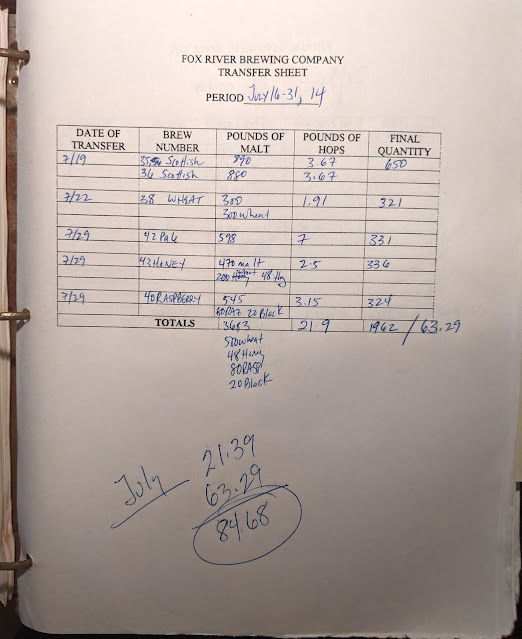 FOX RIVER BREWING COMPANY
TRANSFER SHEET
PERIOD July 16-31, 14
DATE OF TRANSFER BREW NUMBER POUNDS OF MALT POUNDS OF HOPS FINAL QUANTITY
7/19 35 Scottish 890 3.67 650
36 Scottish 880 3.67
7/22 38 WHEAT 300 1.91 321
300 wheat
7/29 42 Pale 598 7 331
7/29 43 HONEY 470 malt 2.5 336
200 wheat 48 Hny
7/29 40 RASPBERRY 545 3.15 324
80 RAZ 20 Black
TOTALS 3683 21.9 1962 / 63.29
500 wheat
48 Hony
80 RASP
20 Black
July
21.39
63.29
84.68